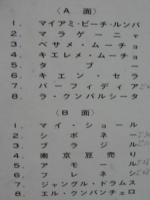 〈A 面〉
1. マイアミ・ビーチ・ルンバ
2. マラゲーニャ
3. ベサメ・ムーチョ
4. キエレメ・ムーチョ
5. タブー
6. キエン・セラ
7. パーフィディア
8. ラ・クンパルシータ
〈B 面〉
1. マイ・ショール
2. シボネー
3. ブラジル
4. 南京豆売り
5. アモール
6. フレネシー
7. ジャングル・ドラムス
8. エル・クンバンチェロ